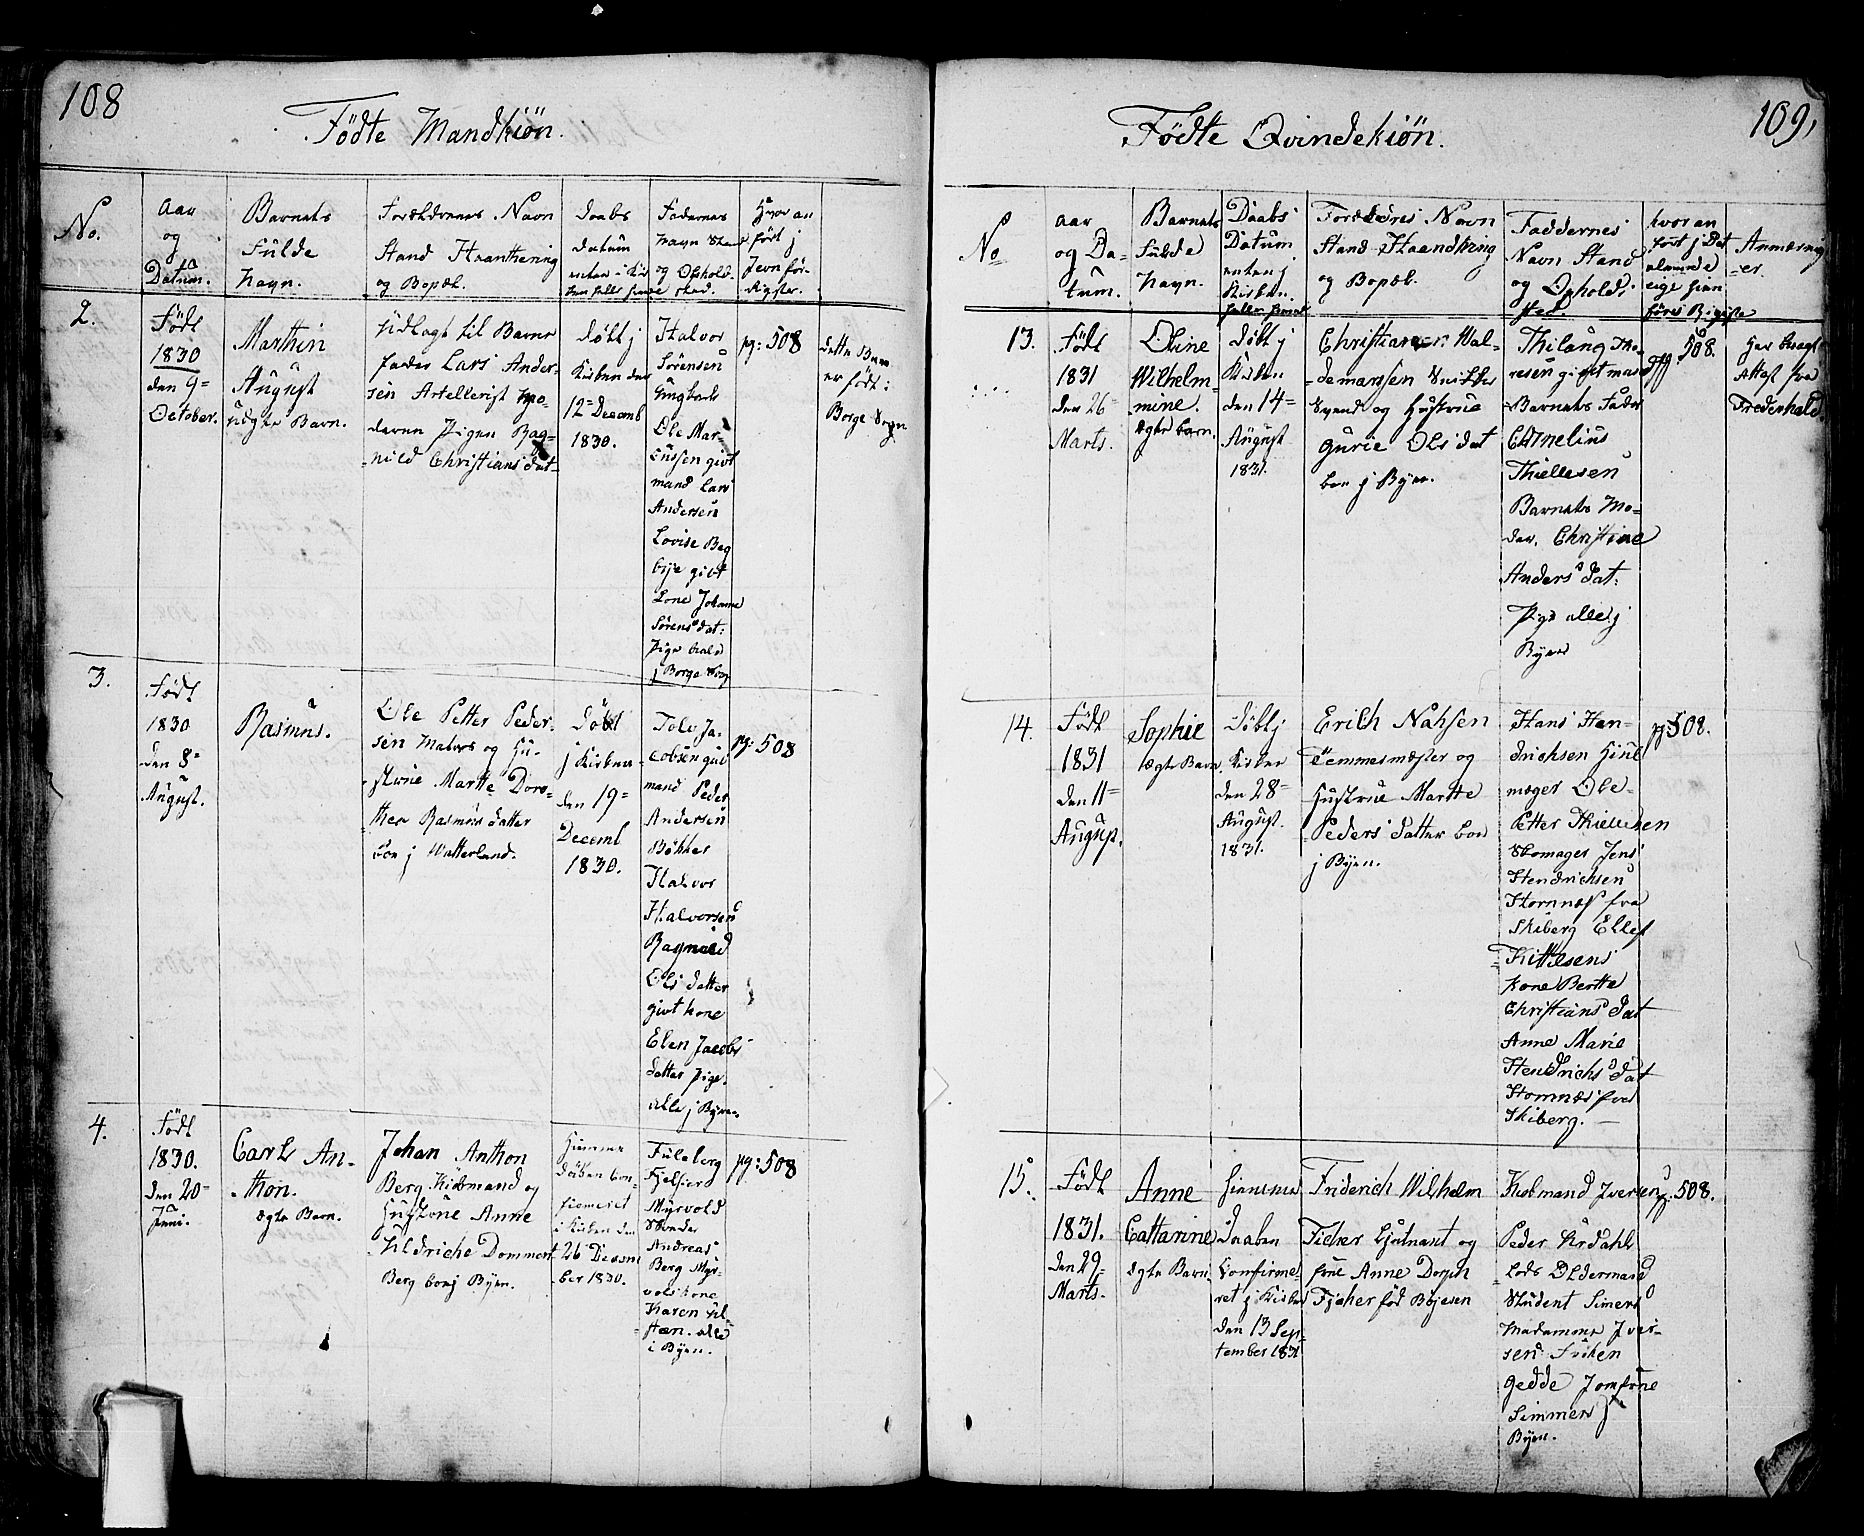 108
Fødte Mandkiøn.
No.
Aar
og
Datum.
Barnets
Fulde
Navn.
Forældrenes Navn
Stand Haanthering
og Bopæl.
Daabs
Datum
enten i Kir
Fadernes
Navn Stand
og Ophold
sted.
Hvor an
ført j
Jevnfør-
Rigster.
2.
Født
1830
den 9=
October.
Marthin
August
uægte Barn.
Udlagt til Barne
fader Lars Ander-
sen Artellerist Mo-
deren Pigen Rag-
nild Christians dat
Døbt j
Kirken den
12= Decemb
1830.
Halvor
Sørensen
Ungkarl
Ole Mar-
cussen givt
mand Lars
Andersen
Lovise Beg
bye givt
Lone Johanne
Sørens dat:
Pige
j Borge Sogn
pg: 508
dette Barn
er født i
Borge Sogn
3.
Født
1830
den 8=
August.
Rasmus.
Ole Petter Peder-
sen Matros og Hu-
strue Marthe Doro-
thea Rasmus datter
boe j Watterland.
Døbt
j Kirken
den 19=
Decemb
1830.
Tolv Ja-
cobsen givt
mand Peder
Andersen
Bøkker
Halvor
Halvorsen
Ragnild
Ols datter
givt kone
Elen Jacobs
datter Pige.
alle j Byen.
pg: 508
4.
Født
1830.
den 20=
Juni.
Carl An-
thon.
Ægte Barn.
Johan Anthon
Berg Kiøbmand og
Hustrue Anne
Uldriche Dommert
Berg boe j Byen.
Hiemme
døben con-
firmeret
i Kirken den
26 Decem
ber 1830.
Fuleberg
Myrvold
Andreas
Berg Myr-
vols kone
Karen
alle
i Byen.
pg: 508
109,
Fødte Qvindekiøn.
No
Aar
og Da-
tum.
Barnets
Fulde
Navn.
Daabs
Datum
enten j
Kirken
eller hiemme
Forældres Navn
Stand Haandtering
og Bopæl.
Faddernes
Navn Stand
og Opholds
sted
hvor an
ført j Det
alminde
lige Jevn
føres Rigiste
Anmærning
-er.
13.
Født
1831
den 26=
Marts.
Oline
Wilhelm-
mine.
Ægte barn.
Døbt j
Kirken
den 14=
August
1831.
Christian Wal-
demarssen Snikker
Svend og Hustrue
Gurie Ols dat
boe j Byen.
Thilang Tho-
resen givt mand
Barnets Fader
Cornelius
Thiellesen
Barnets Mo-
der. Christine
Anders dat:
Pige alle j
Byen
pg 508.
Attest fra
Frederhald.
14.
Født
1831
den 11=
August.
Sophie
ægte Barn.
Døbt j
Kirken
den 28=
August.
1831.
Erich Nahsen
Temmermester og
Hustrue Marthe
Peders datter boe
j Byen.
Hans Hen-
drichsen Hiul
mager Ole-
Petter Thiellesen
Skomager Jens
Hendrichsen
Hornnæs fra
Skiberg Ellef
Kittelsens
kone Berthe
Christians dat
Anne Marie
Hendrichs dat
Hornnæs fra
Skiberg.
pg 508.
15.
Født
1831.
den 29=
Marts.
Anne
Catharine
Ægte Barn.
hiemme
Daaben
Confirme-
ret j Kirken
den 13 Sep-
tember 1831
Friderich Wilhelm
Ficher Lieutnant og
frue Anne Dorph
Fischer fød Bøjesen
Kiøbmand Iversen
Peder Ørdahl
Lods Oldermand
Student Simers
Madamme Iver-
sen Frøken
Gedde Jomfrue
Simmers j
Byen.
pg. 508.